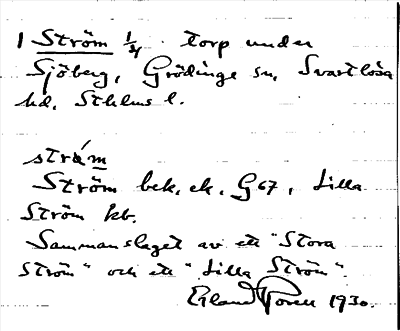 1 Ström 1/4. torp under
Sjöberg, Grödinge sn, Svartlösa
hd, Sthlms l.
strǻm
Ström bek. ek. G67, Lilla
Ström kb.
Sammanslaget av ett "Stora
Ström" och ett "Lilla Ström".
Erland Rosell 1930.